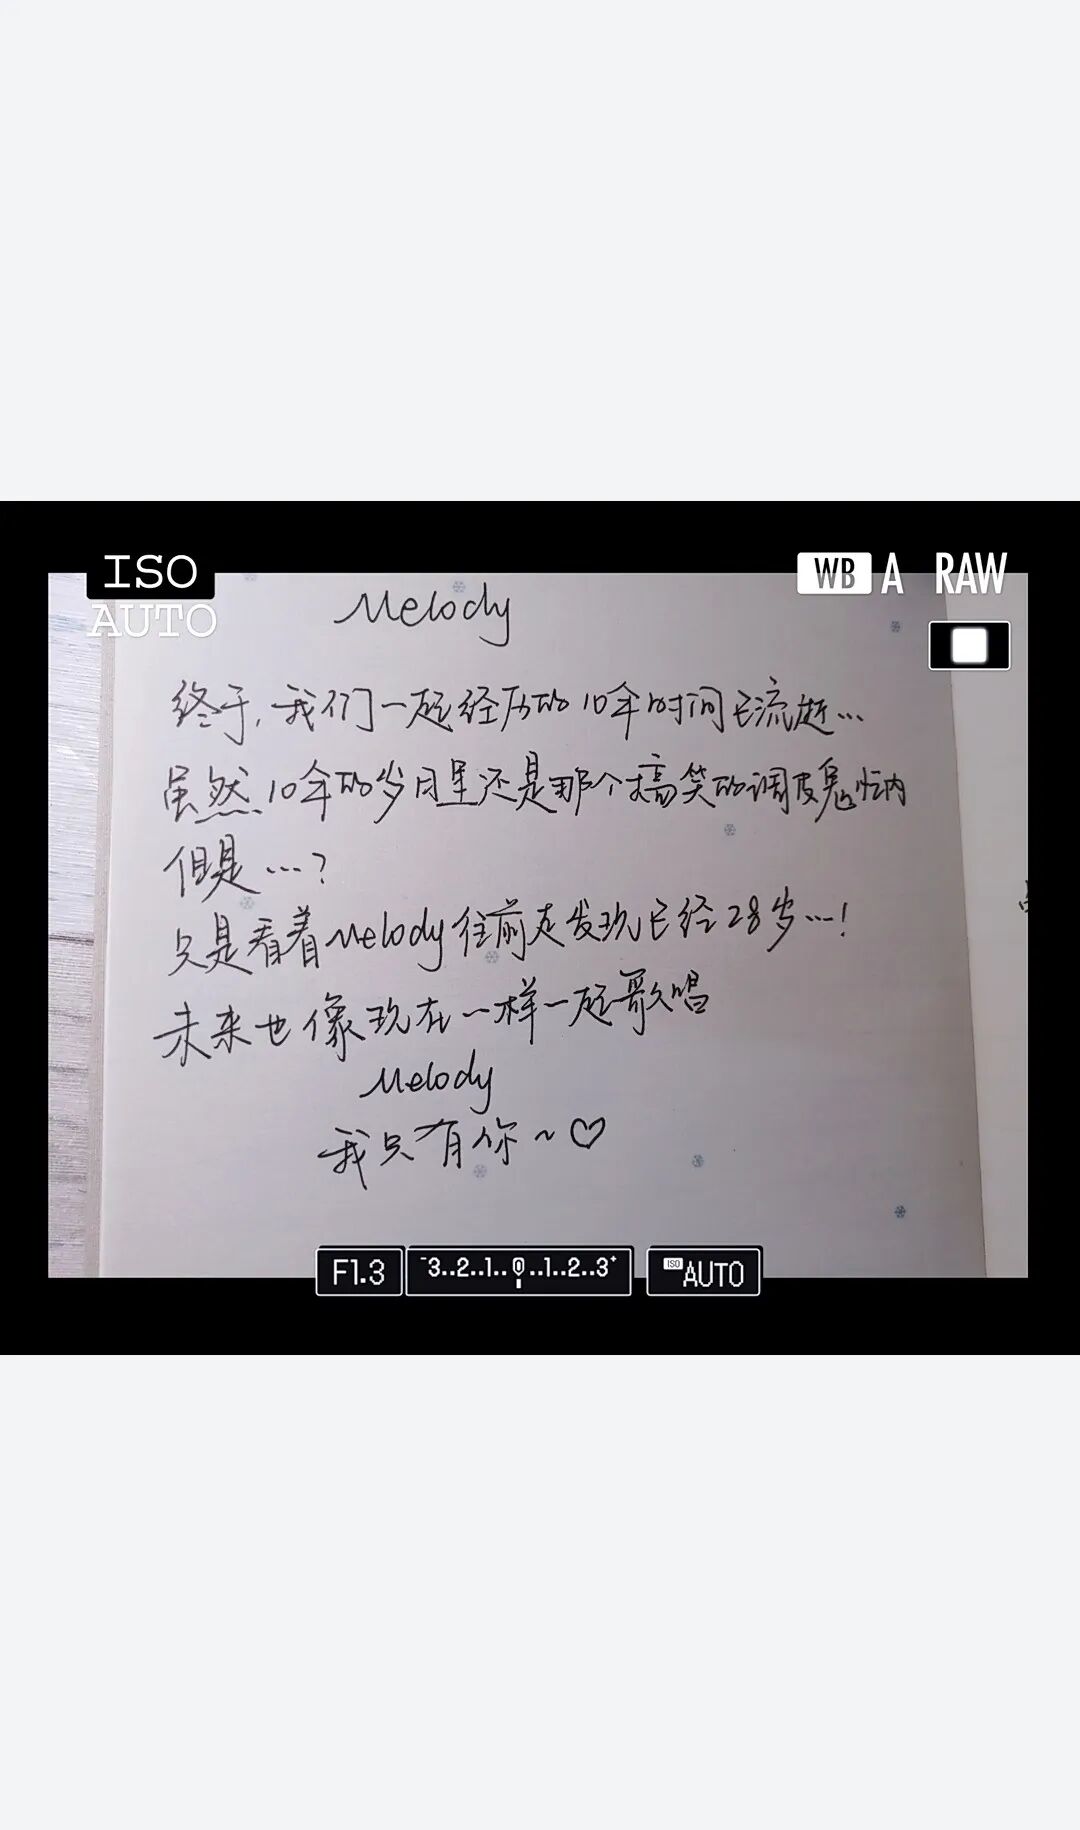 ISO
AUTO
WB A RAW
Melody
终于,我们一起经历的10年时间已流逝...
虽然10年的岁月里还是那个搞笑的调皮鬼恒内
但是...?
只是看着Melody往前走发现已经28岁...!
未来也像现在一样一起歌唱
Melody
我只有你~♡
F1.3
-3..2..1..0..1..2..3+
ISO AUTO